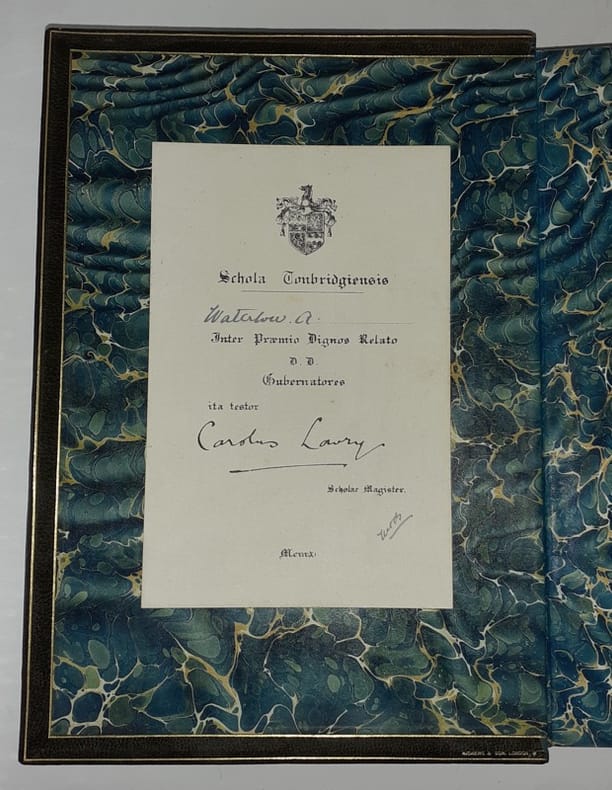 Schola Tonbridgiensis
Waterlow. A.
Inter Præmio Dignos Relato
D. D.
Gubernatores
ita testor
Carolus Lowry
Scholae Magister.
Mcmx
& SON, LONDON, W